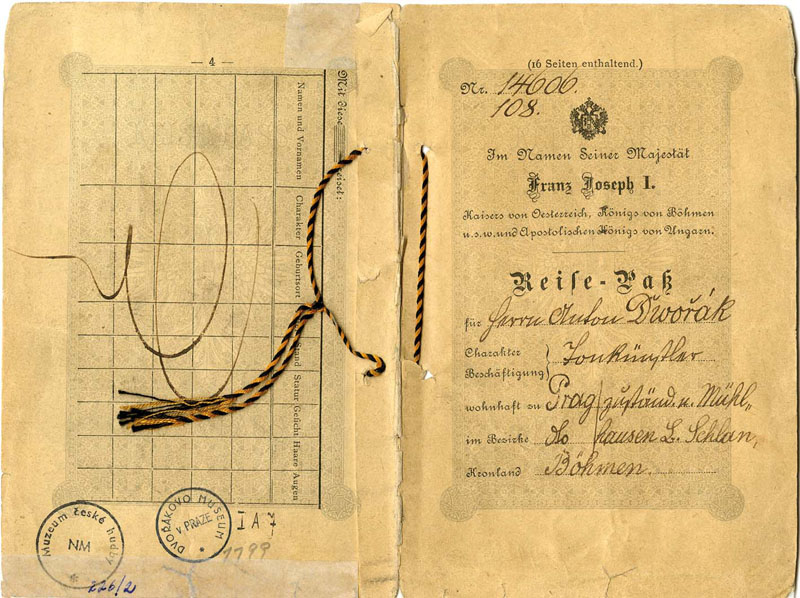 — 4 —
Namen und Vornamen Charakter Geburtsort Stand Statur Gesicht Haare Augen
Muzeum české hudby
NM
DVOŘÁKOVO MUSEUM
V PRAZE
I A 7
1799
226/2
(16 Seiten enthaltend.)
Nr. 14606.
108.
Im Namen Seiner Majestät
Franz Joseph I.
Kaisers von Oesterreich, Königs von Böhmen
u.s.w. und Apostolischen Königs von Ungarn.
Reise-Paß
für Herrn Anton Dvořák
Charakter
Beschäftigung } Tonkünstler
wohnhaft zu Prag / zuständ. n. Mühl-
im Bezirke dto hausen B. Schlan,
Kronland Böhmen.